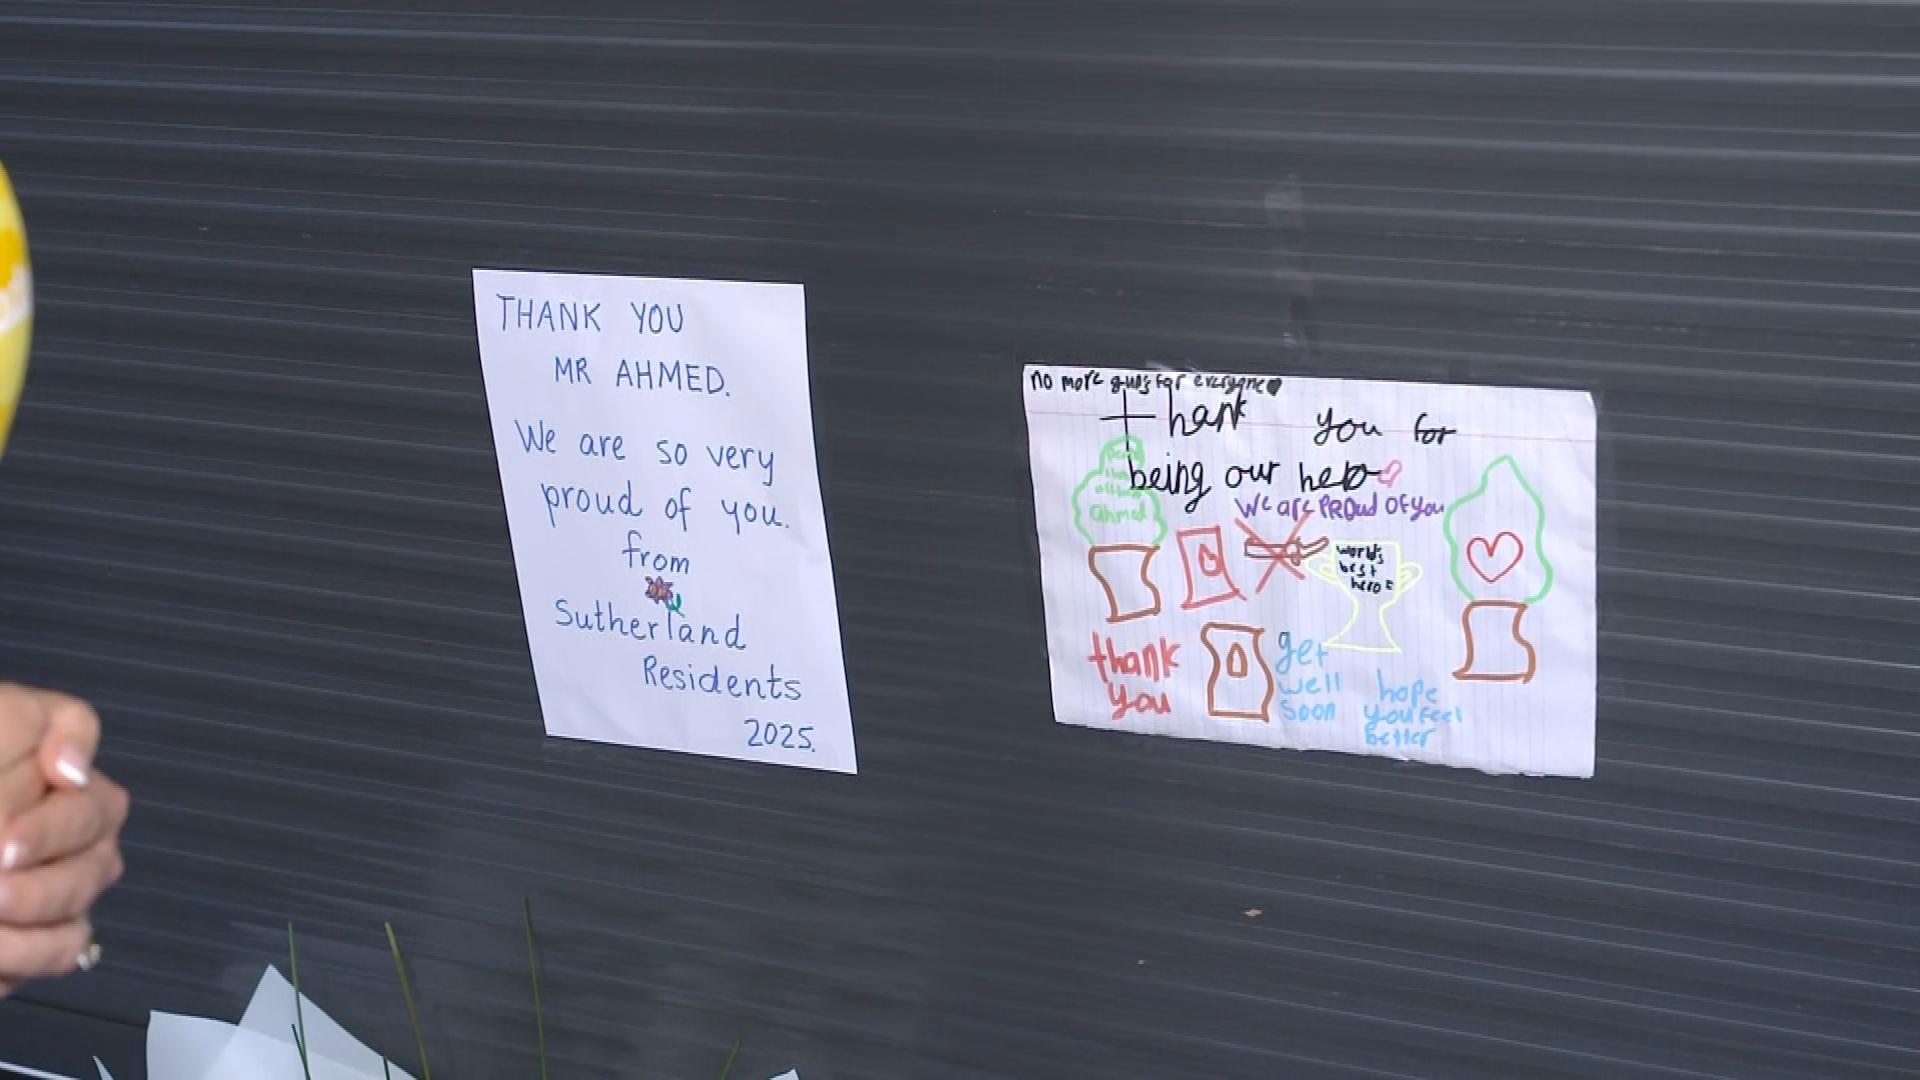 THANK YOU
MR AHMED.
We are so very
proud of you.
from
Sutherland
Residents
2025.
no more guns for everyone
Thank you for
being our hero
We are PRoud of you
ahmed
world's
best
hero
thank
you
get
well
soon
hope
you feel
better